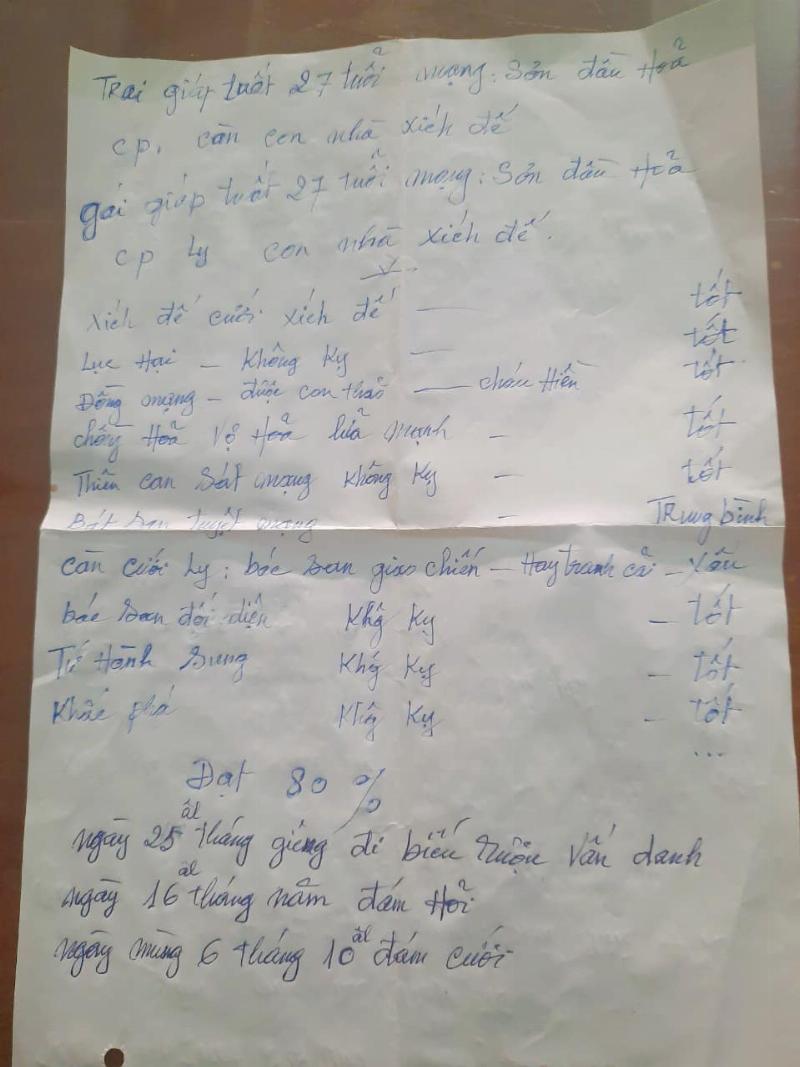 Trai giáp tuất 27 tuổi mạng: Sơn đầu Hoả
cp. càn con nhà xích đế
gái giáp tuất 27 tuổi mạng: Sơn đầu Hoả
cp Ly con nhà xích đế.
xích đế cưới xích đế — tốt
Lục Hại – Không Kỵ — tốt
Đồng mạng – được con thảo — cháu Hiền tốt
chồng Hoả Vợ Hoả lửa mạnh – tốt
Thiên can Sát mạng Không Kỵ – tốt
Bát san tuyệt mạng – Trung bình
Càn cưới Ly: bác san giao chiến – Hay tranh cải – xấu
bác san đối diện Khg Kỵ – tốt
Tứ Hành Sung Khg Kỵ – Tốt
Khắc phá Khg Kỵ – Tốt
...
Đạt 80%
ngày 25 âl tháng giêng đi biếu rượu vấn danh
ngày 16 âl tháng năm đám Hỏi
ngày mùng 6 tháng 10 âl đám cưới